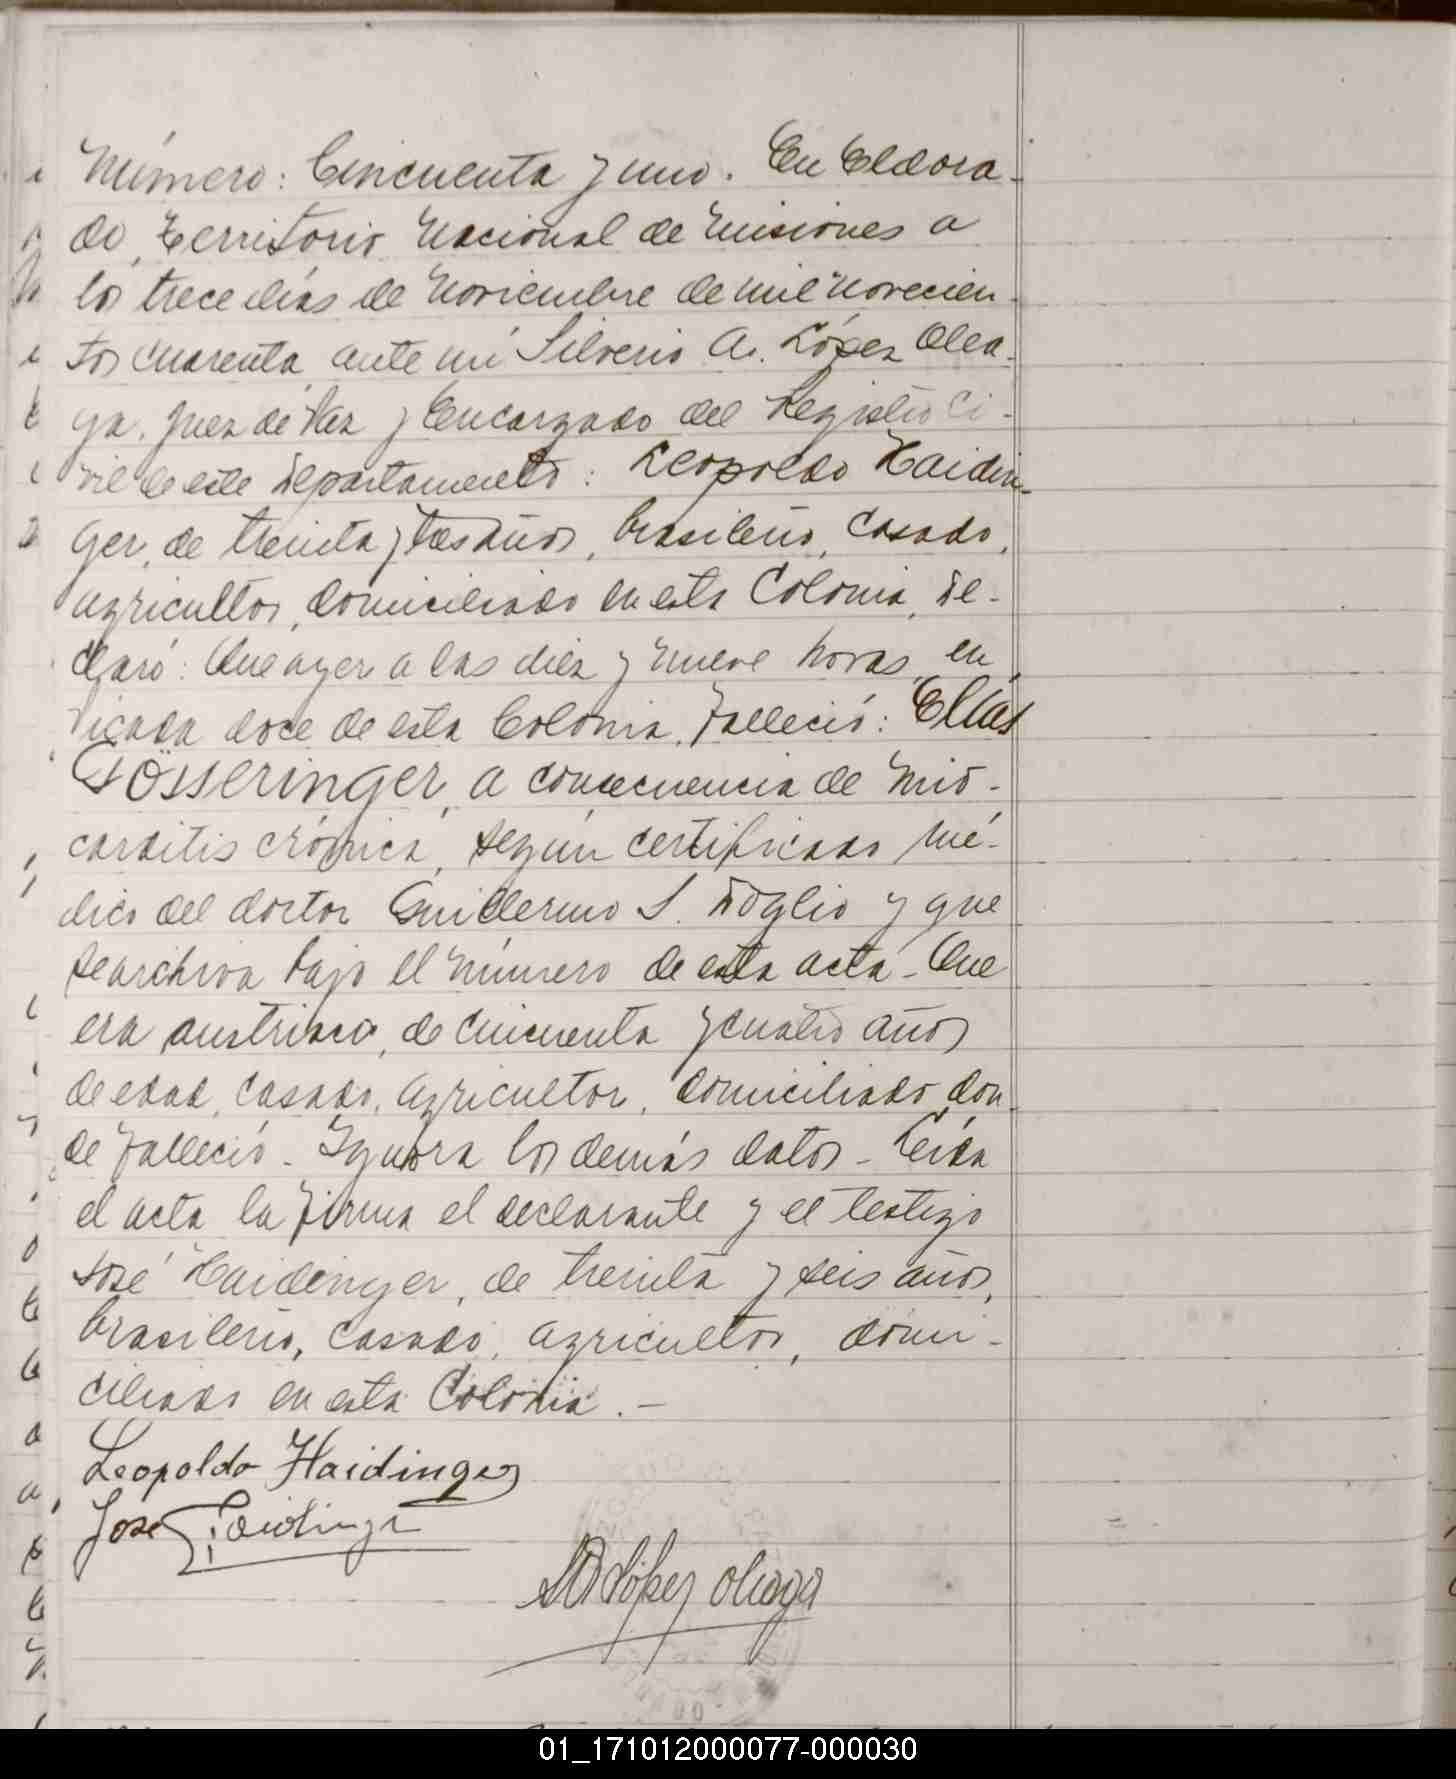 Número: Cincuenta y uno. En Eldora-
do, Territorio Nacional de Misiones a
los trece días de Noviembre de mil novecien-
tos cuarenta ante mí Silverio A. López Olea-
ga, Juez de Paz y Encargado del Registro Ci-
vil de este Departamento: Leopoldo Haidin-
ger, de treinta y tres años, brasileño, casado,
agricultor, domiciliado en esta Colonia, De-
claró: Que ayer a las diez y nueve horas, en
Picada doce de esta Colonia, falleció: Elias
Gösseringer, a consecuencia de mio-
carditis crónica, según certificado mé-
dico del doctor Guillermo S. Doglio y que
se archiva bajo el número de esta acta - Que
era austriaco, de cincuenta y cuatro años
de edad, casado, agricultor, domiciliado don-
de falleció - Ignora los demás datos - Leída
el acta la firma el declarante y el testigo
José Haidinger, de treinta y seis años,
brasileño, casado, agricultor, domi-
ciliado en esta Colonia. -
Leopoldo Haidinger
Jose Haidinger
SA López Oleaga
01_171012000077-000030